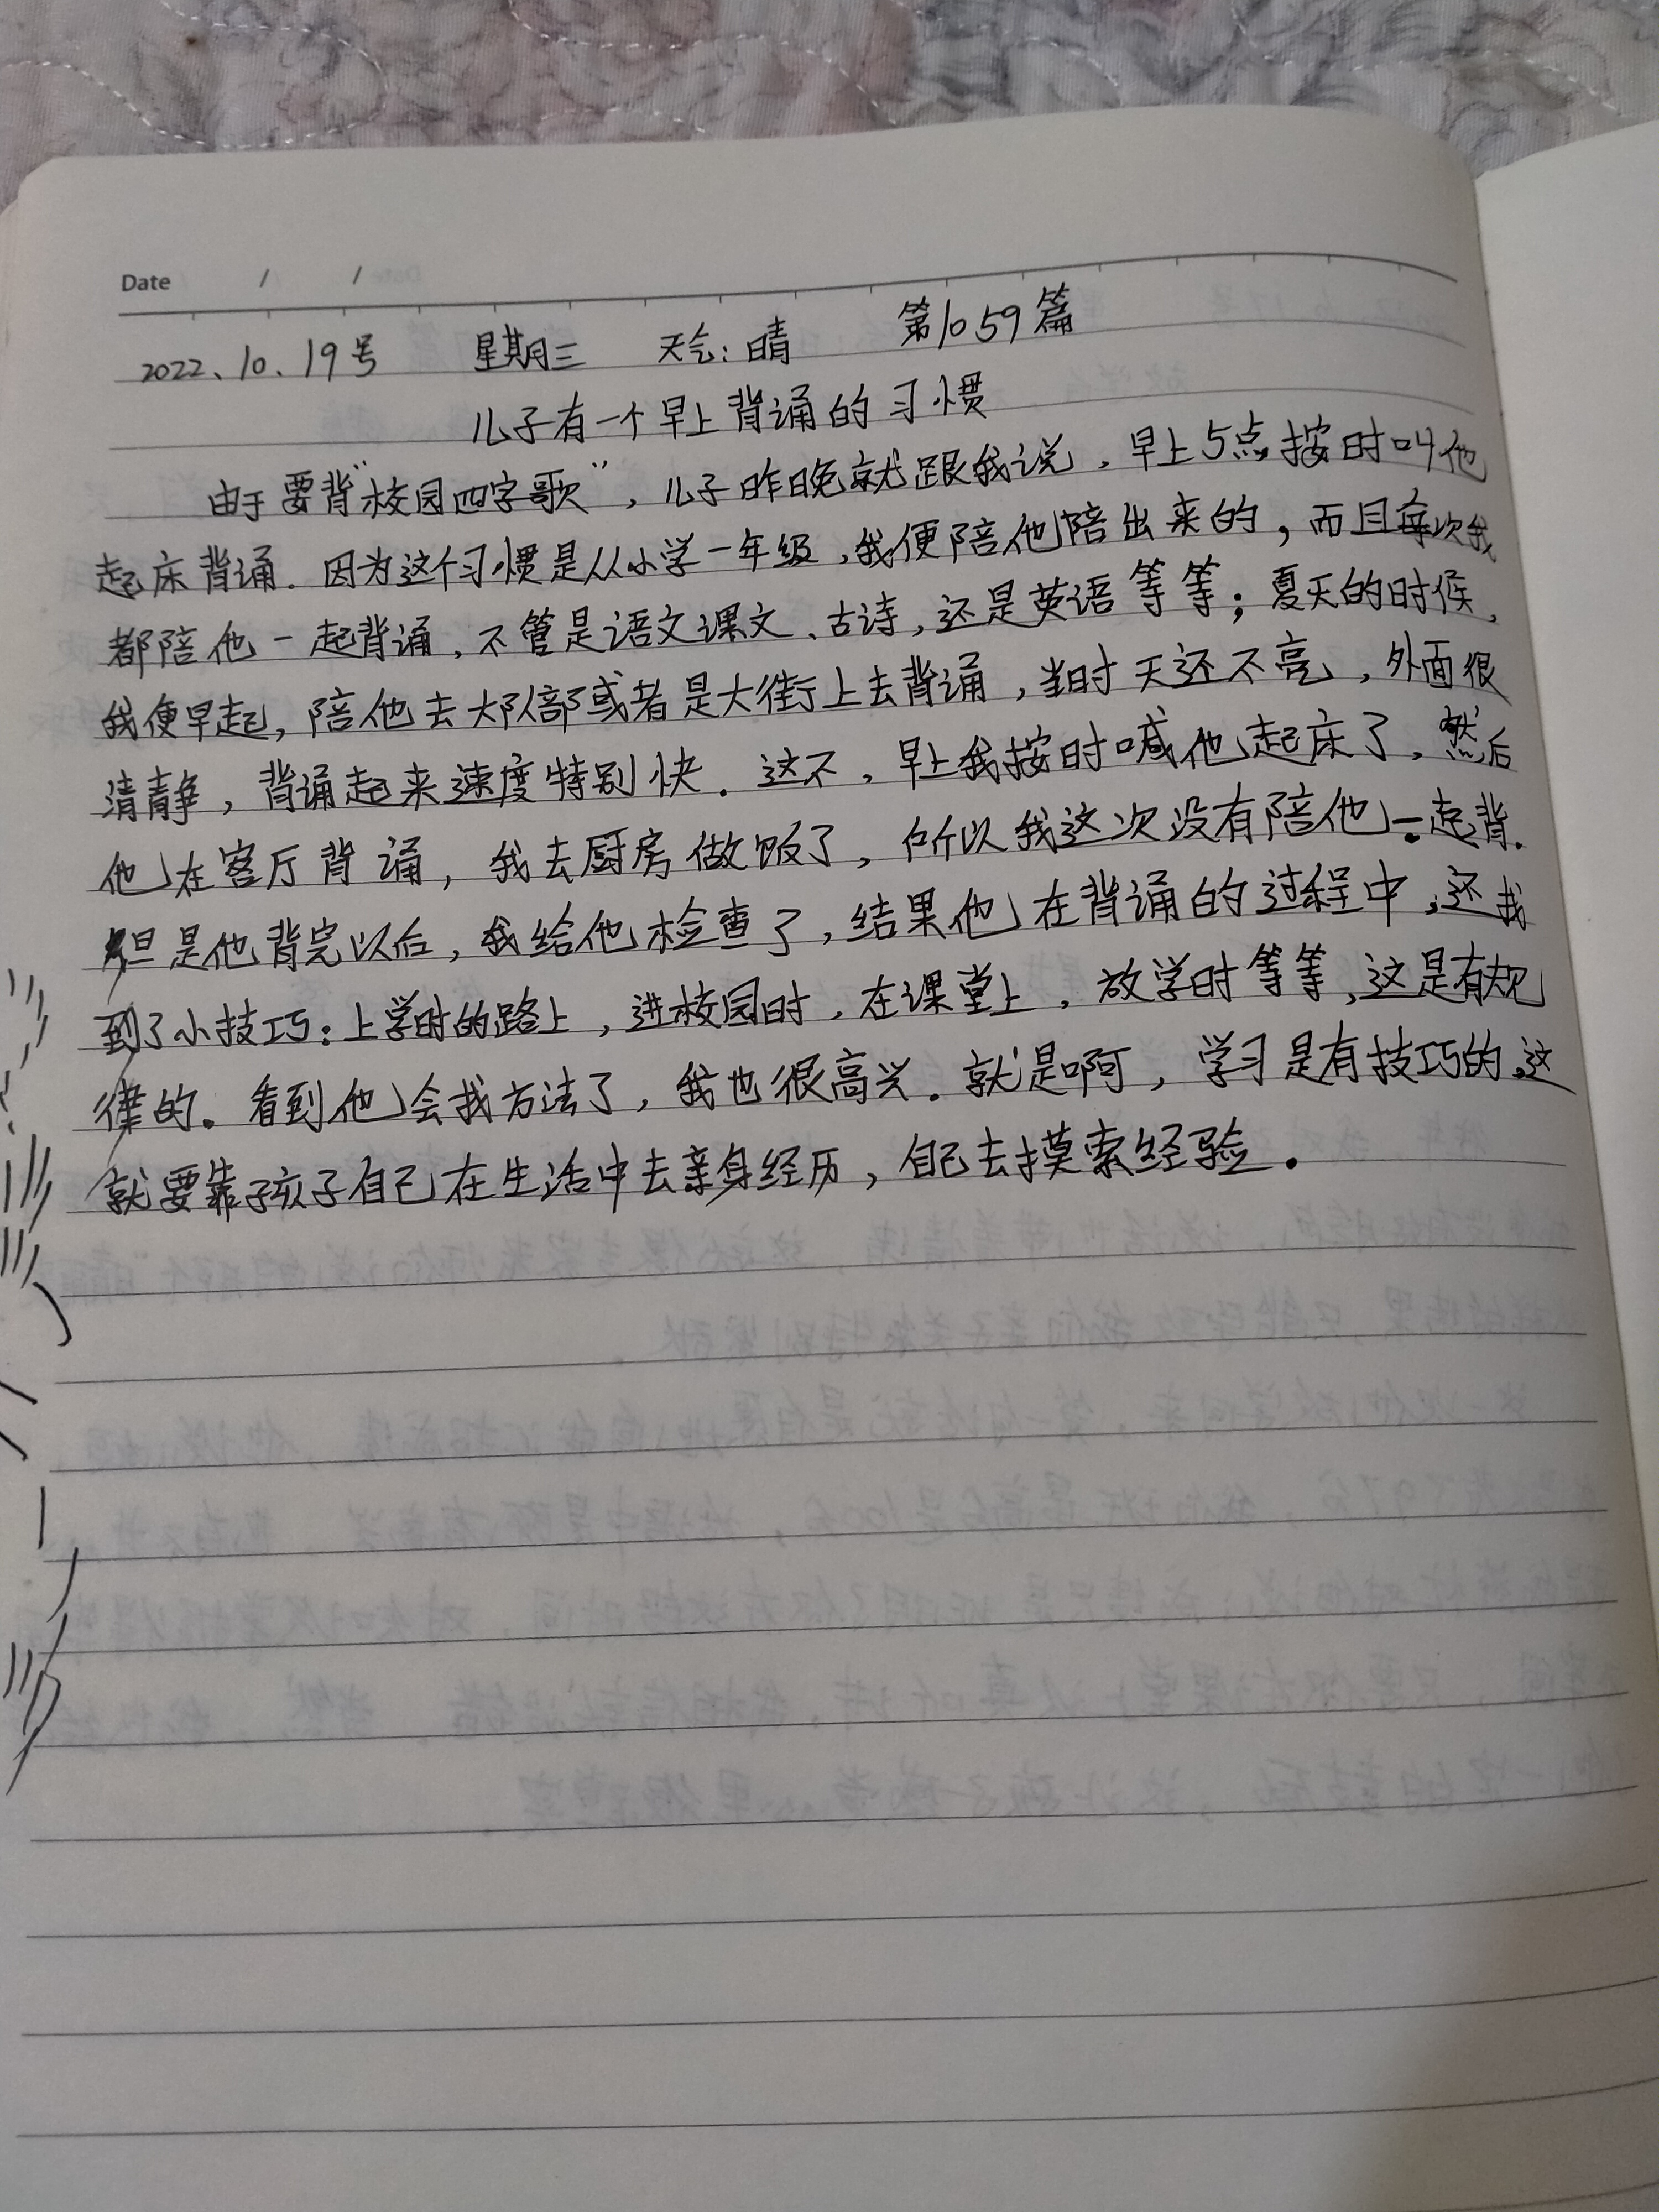 Date / /
2022、10、19号 星期三 天气:晴 第1059篇
儿子有一个早上背诵的习惯
由于要背"校园四字歌",儿子昨晚就跟我说,早上5点按时叫他
起床背诵。因为这个习惯是从小学一年级,我便陪他陪出来的,而且每次我
都陪他一起背诵,不管是语文课文、古诗,还是英语等等;夏天的时候,
我便早起,陪他去大队部或者是大街上去背诵,当时天还不亮,外面很
清静,背诵起来速度特别快。这不,早上我按时喊他起床了,然后
他在客厅背诵,我去厨房做饭了,所以我这次没有陪他一起背.
但是他背完以后,我给他检查了,结果他在背诵的过程中,还找
到了小技巧:上学时的路上,进校园时,在课堂上,放学时等等,这是有规
律的。看到他会找方法了,我也很高兴。就是啊,学习是有技巧的,这
就要靠孩子自己在生活中去亲身经历,自己去摸索经验。